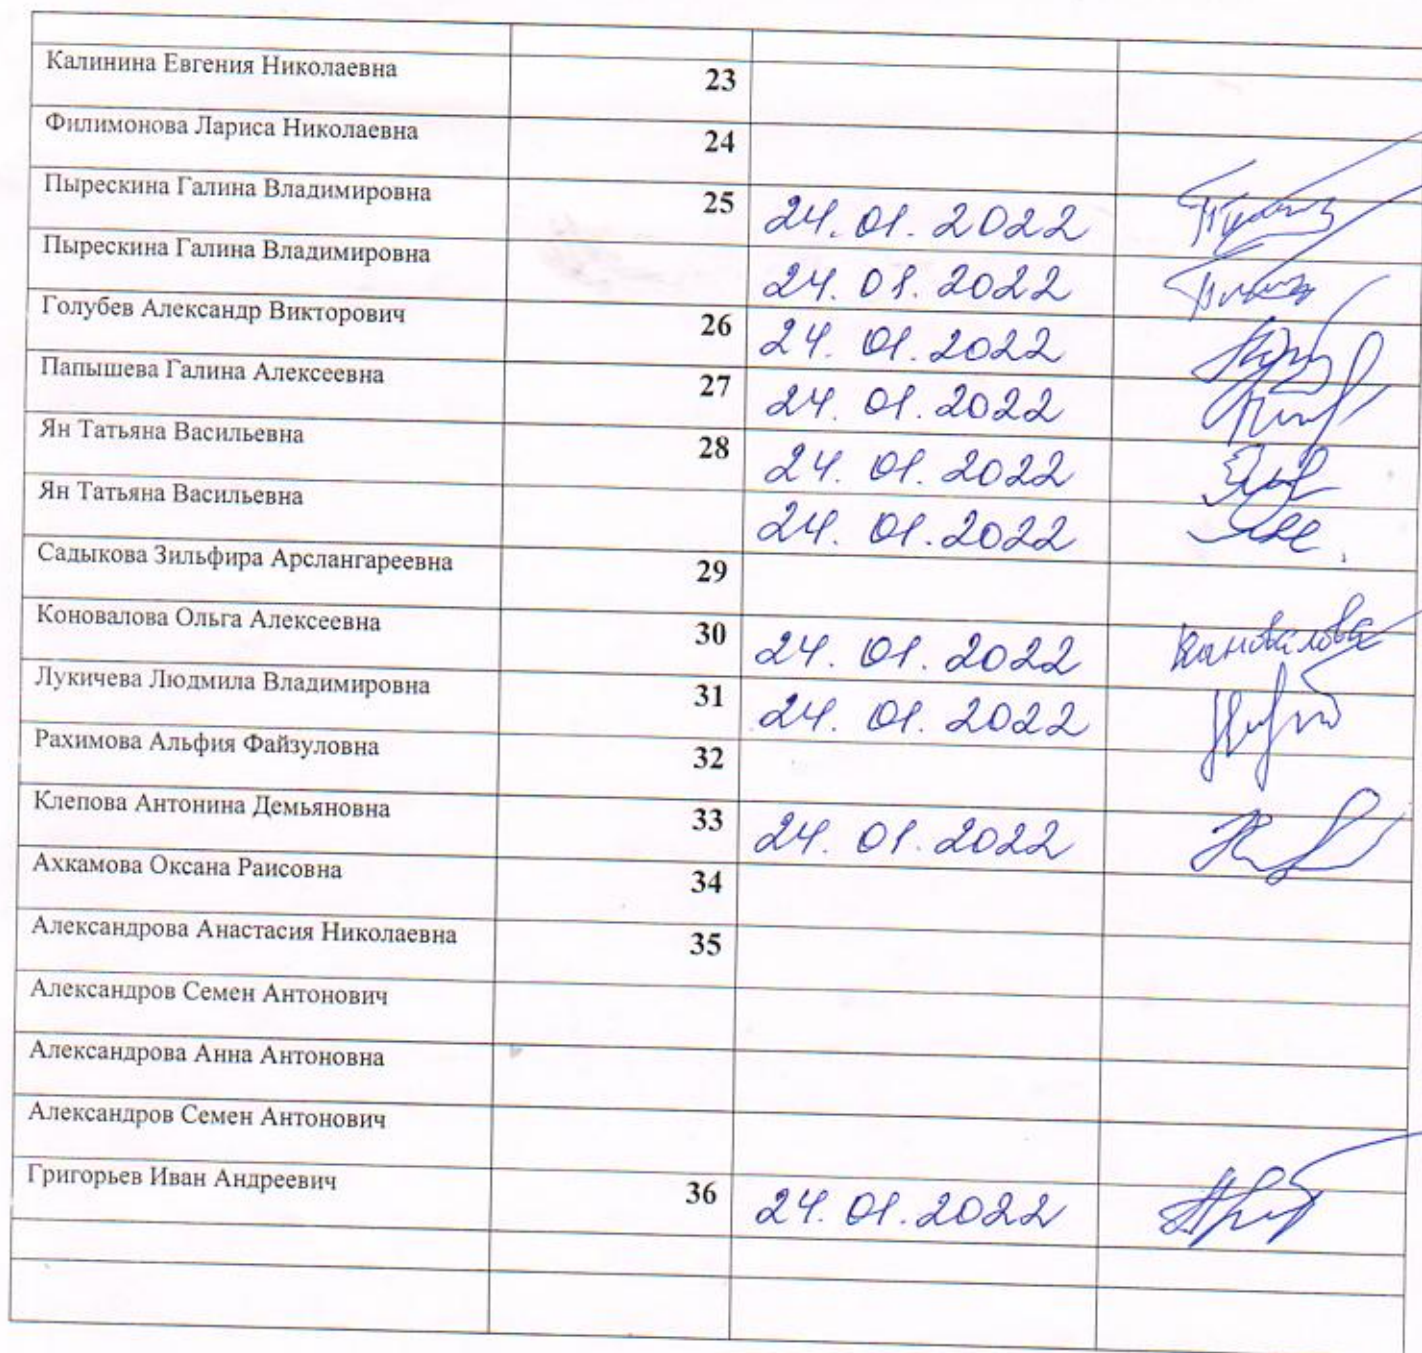 Калинина Евгения Николаевна 23
Филимонова Лариса Николаевна 24
Пырескина Галина Владимировна 25 24.01.2022
Пырескина Галина Владимировна 24.01.2022
Голубев Александр Викторович 26 24.01.2022
Папышева Галина Алексеевна 27 24.01.2022
Ян Татьяна Васильевна 28 24.01.2022
Ян Татьяна Васильевна 24.01.2022
Садыкова Зильфира Арслангареевна 29
Коновалова Ольга Алексеевна 30 24.01.2022 Коновалова
Лукичева Людмила Владимировна 31 24.01.2022
Рахимова Альфия Файзуловна 32
Клепова Антонина Демьяновна 33 24.01.2022
Ахкамова Оксана Раисовна 34
Александрова Анастасия Николаевна 35
Александров Семен Антонович
Александрова Анна Антоновна
Александров Семен Антонович
Григорьев Иван Андреевич 36 24.01.2022